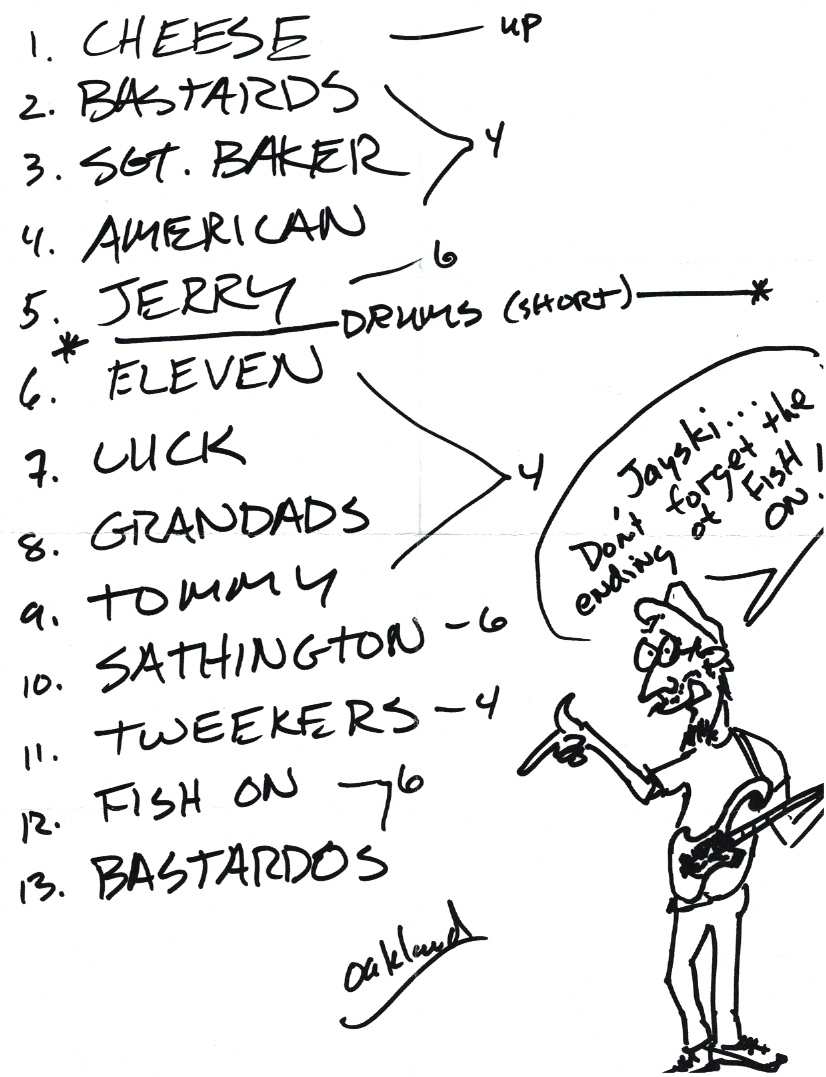 1. CHEESE — up
2. BASTARDS
3. SGT. BAKER 4
4. AMERICAN
5. JERRY — 6
* DRUMS (SHORT) *
6. ELEVEN
7. LUCK 4
8. GRANDADS
9. TOMMY
10. SATHINGTON - 6
11. TWEEKERS - 4
12. FISH ON 6
13. BASTARDOS
oakland
Jayski...
Don't forget the
ending of FISH
ON!